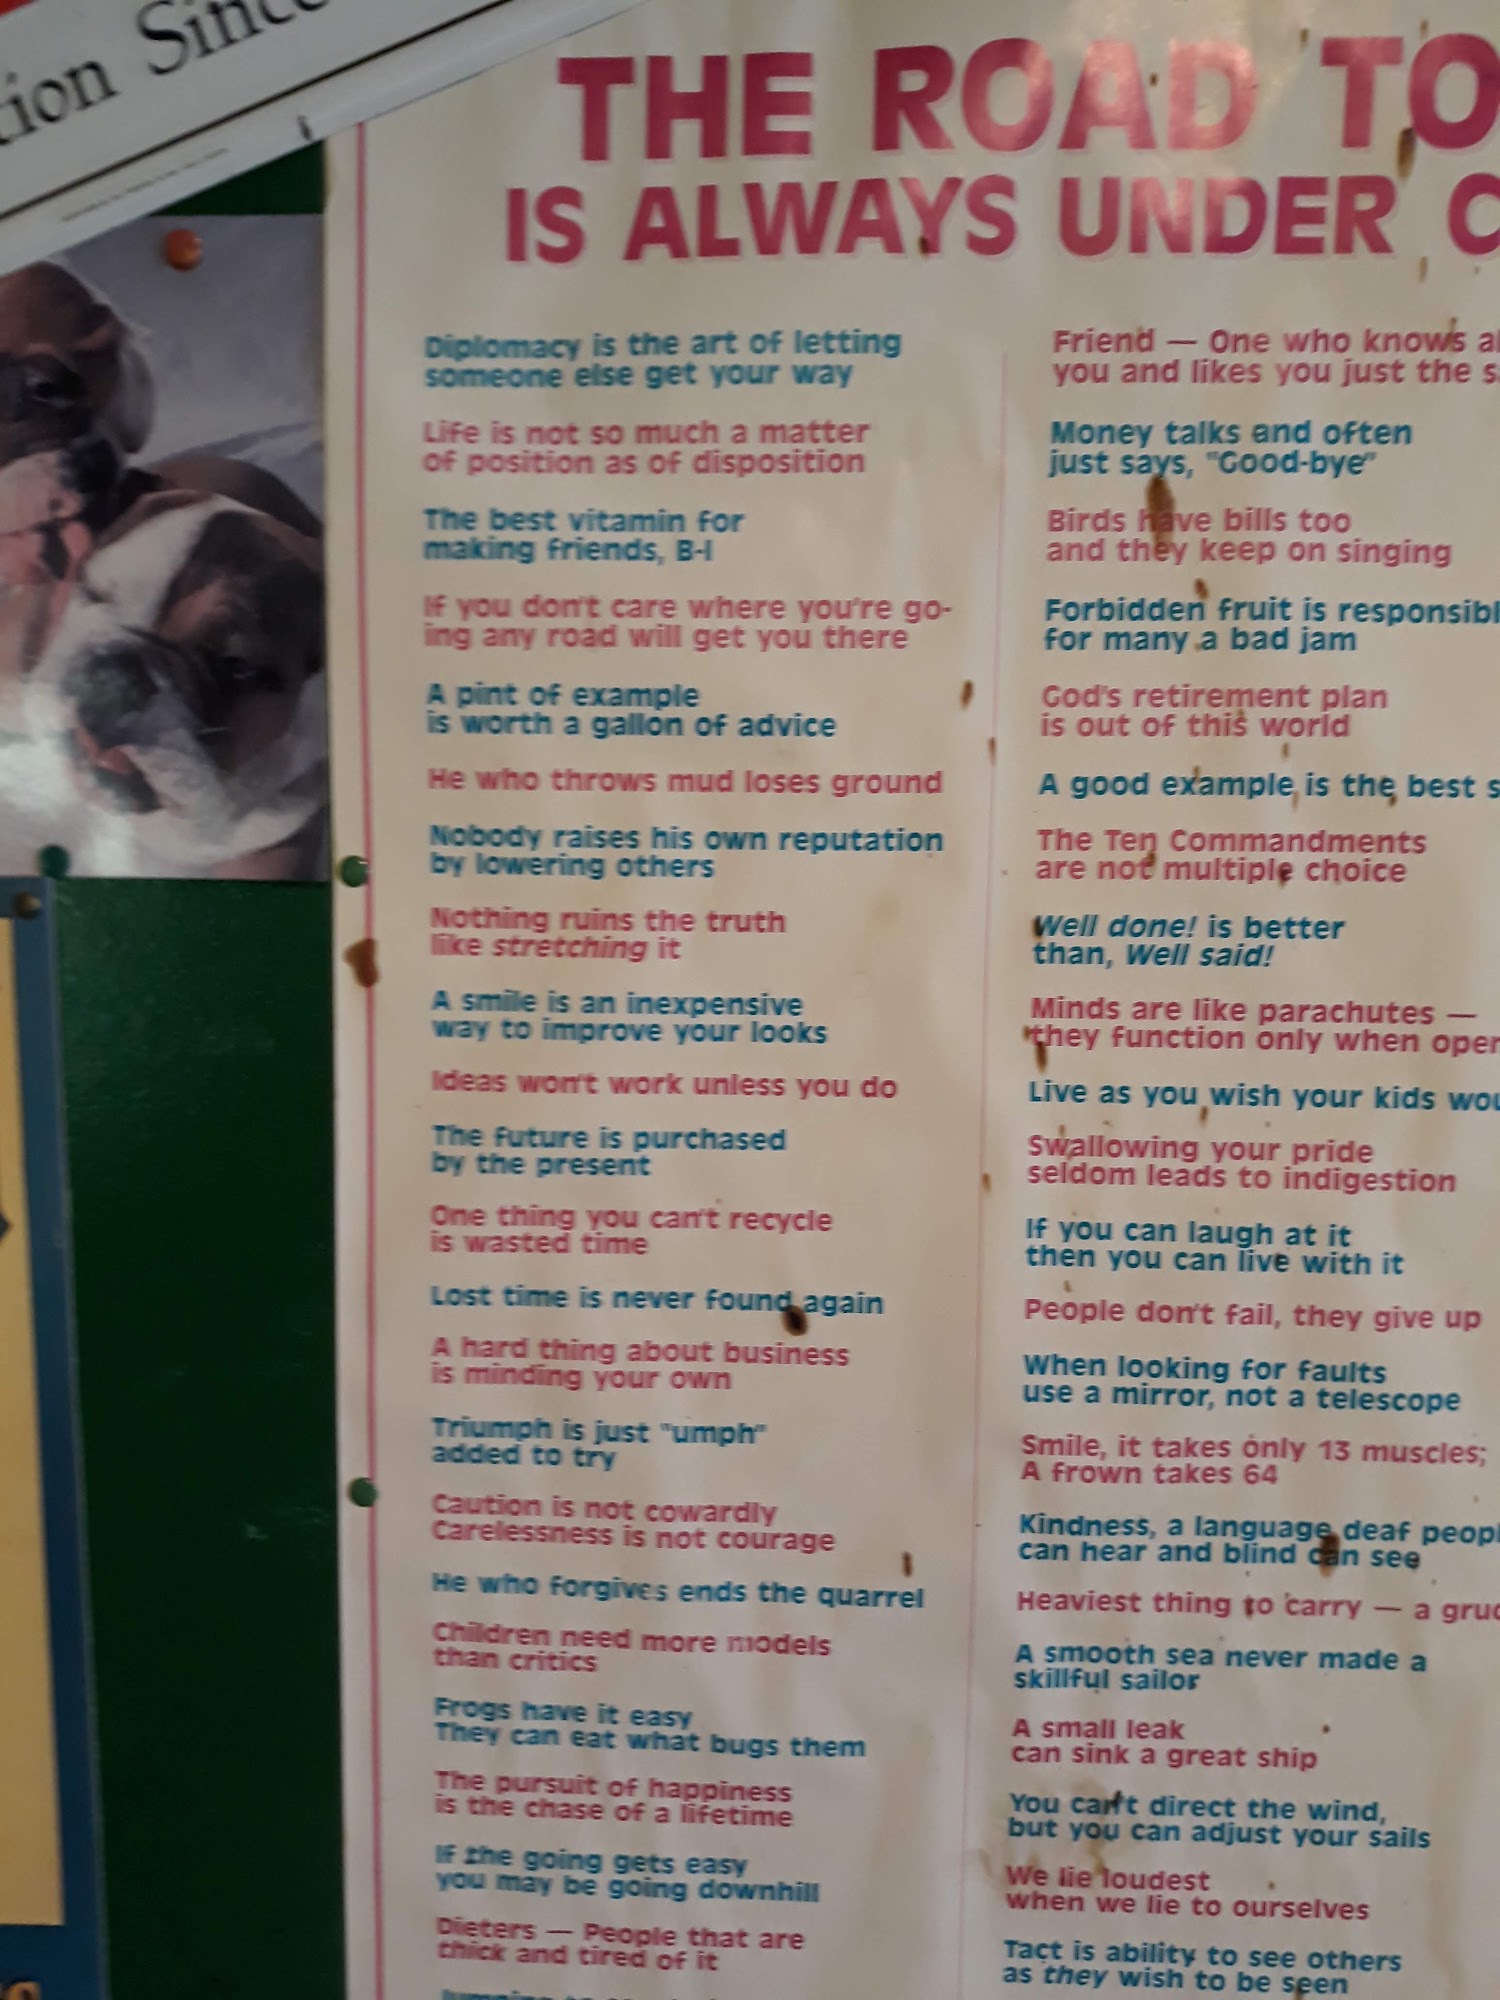 tion Since
THE ROAD TO
IS ALWAYS UNDER C
Diplomacy is the art of letting
someone else get your way
Life is not so much a matter
of position as of disposition
The best vitamin for
making friends, B-1
If you don't care where you're go-
ing any road will get you there
A pint of example
is worth a gallon of advice
He who throws mud loses ground
Nobody raises his own reputation
by lowering others
Nothing ruins the truth
like stretching it
A smile is an inexpensive
way to improve your looks
Ideas won't work unless you do
The future is purchased
by the present
One thing you can't recycle
is wasted time
Lost time is never found again
A hard thing about business
is minding your own
Triumph is just "umph"
added to try
Caution is not cowardly
Carelessness is not courage
He who forgives ends the quarrel
Children need more models
than critics
Frogs have it easy
They can eat what bugs them
The pursuit of happiness
is the chase of a lifetime
If the going gets easy
you may be going downhill
Dieters — People that are
thick and tired of it
Friend — One who knows al
you and likes you just the s
Money talks and often
just says, "Good-bye"
Birds have bills too
and they keep on singing
Forbidden fruit is responsibl
for many a bad jam
God's retirement plan
is out of this world
A good example is the best s
The Ten Commandments
are not multiple choice
Well done! is better
than, Well said!
Minds are like parachutes —
they function only when open
Live as you wish your kids wou
Swallowing your pride
seldom leads to indigestion
If you can laugh at it
then you can live with it
People don't fail, they give up
When looking for faults
use a mirror, not a telescope
Smile, it takes only 13 muscles;
A frown takes 64
Kindness, a language deaf peopl
can hear and blind can see
Heaviest thing to carry — a grud
A smooth sea never made a
skillful sailor
A small leak
can sink a great ship
You can't direct the wind,
but you can adjust your sails
We lie loudest
when we lie to ourselves
Tact is ability to see others
as they wish to be seen